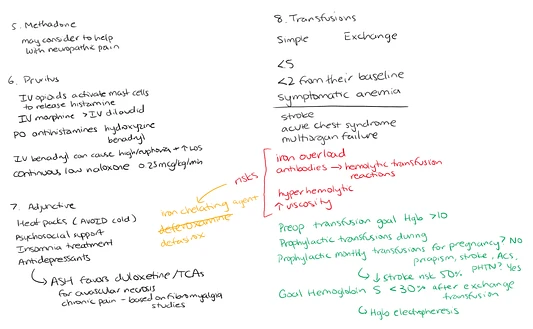 5. Methadone
may consider to help
with neuropathic pain
6. Pruritus
IV opioids activate mast cells
to release histamine
IV morphine > IV dilaudid
PO antihistamines hydroxyzine
benadryl
IV benadryl can cause high/euphoria + ↑ LOS
continuous, low naloxone 0.25mcg/kg/min
7. Adjunctive
Heat packs (AVOID cold)
Psychosocial support
Insomnia treatment
Antidepressants
↳ ASH favors duloxetine/TCAs
for avascular necrosis
chronic pain - based on fibromyalgia
studies
8. Transfusions
Simple Exchange
<5
<2 from their baseline
symptomatic anemia
stroke
acute chest syndrome
multiorgan failure
risks
iron overload
antibodies → hemolytic transfusion
reactions
hyperhemolytic
↑ viscosity
iron chelating agent
deferoxamine
Preop transfusion goal Hgb >10
Prophylactic transfusions during
Prophylactic monthly transfusions for pregnancy? NO
priapism, stroke, ACS,
pHTN? Yes
↳ ↓ stroke risk 50%
Goal Hemoglobin S <30% after exchange
transfusion
↳ Hgb electrophoresis